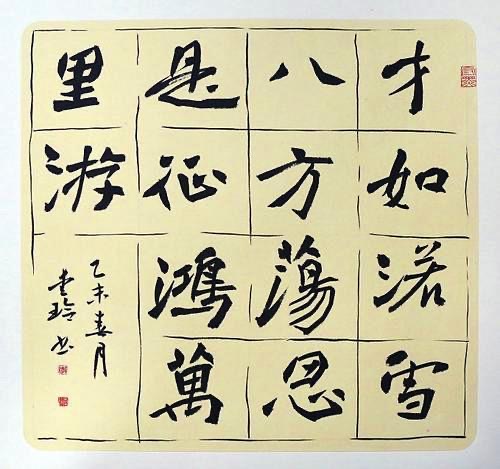 才如渃雪
八方蕩思
是征鴻萬
里游
乙未春月
玲书